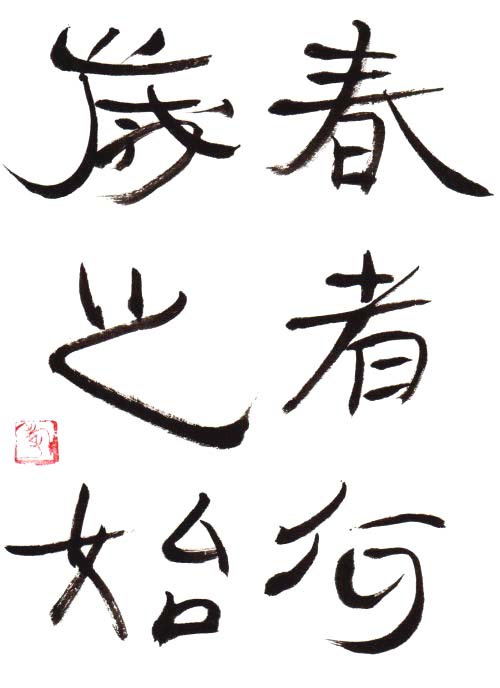 春者何
歳之始